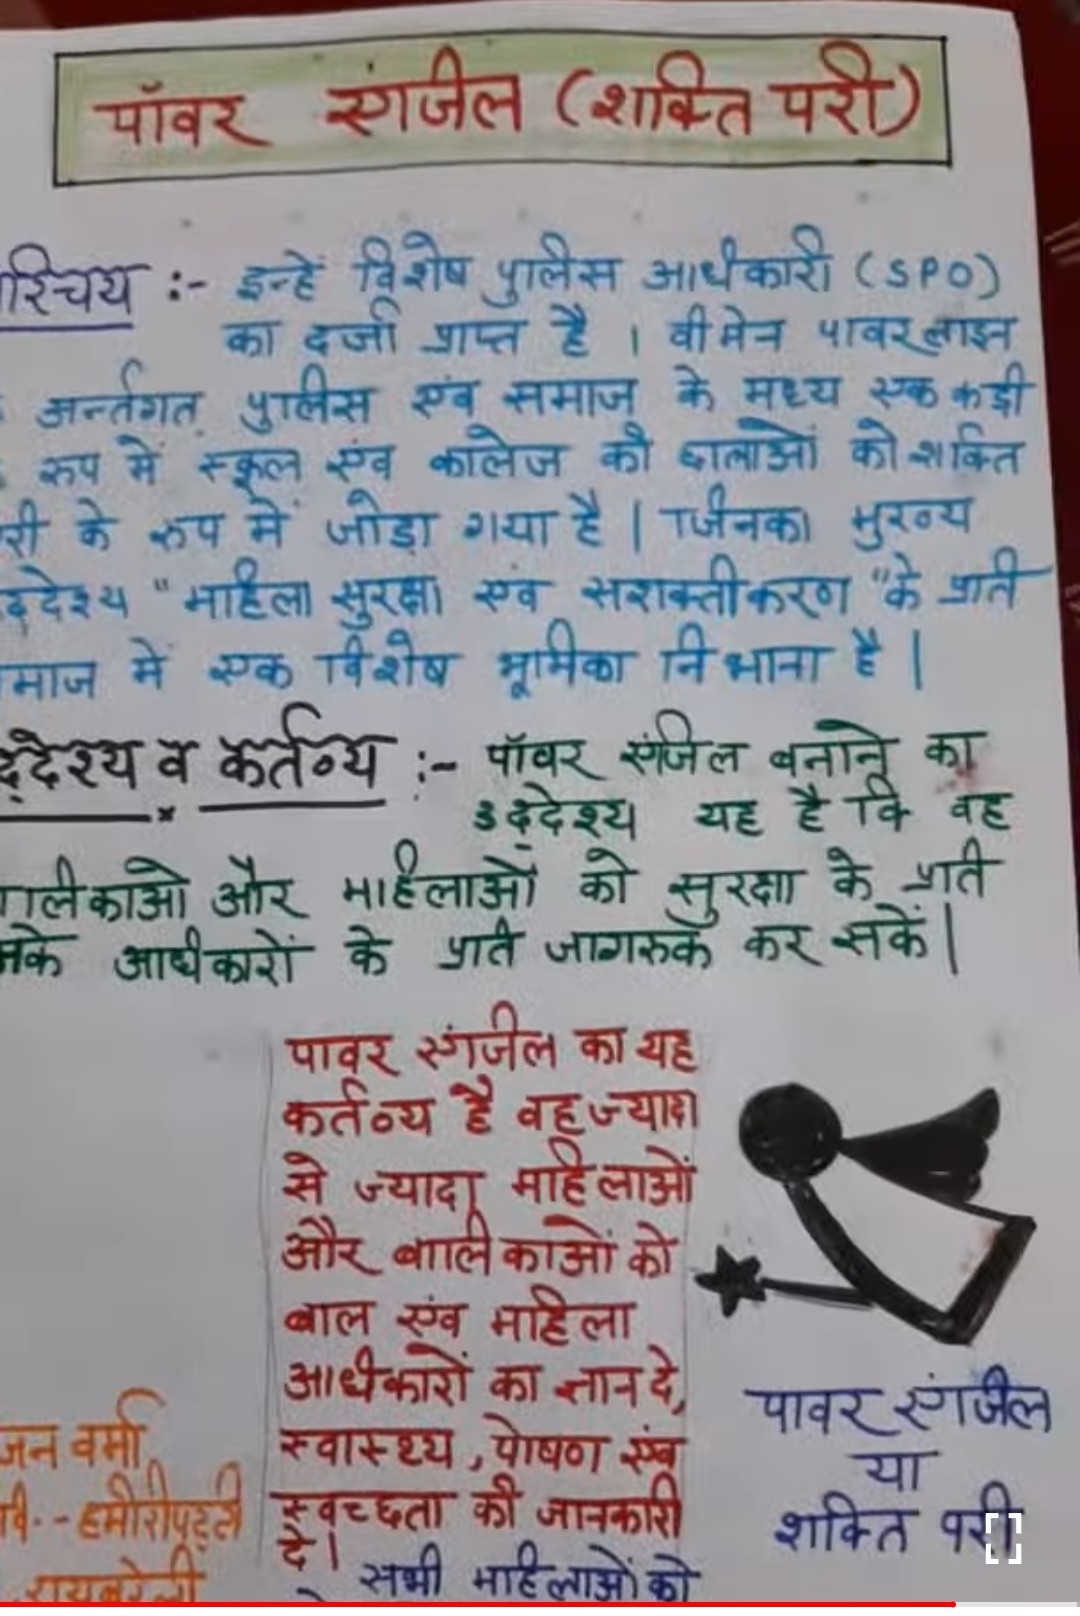 पॉवर एंगजिल (शक्ति परी)
रिचय :- इन्हें विशेष पुलिस अधिकारी (SPO)
का दर्जा प्राप्त है । वीमेन पावर लाइन
अर्न्तगत, पुलिस एंव समाज के मध्य एक कडी
रूप में स्कूल एंव कालेज की छात्राओं को शक्ति
री के रूप में जोड़ा गया है | जिनका मुख्य
द्देश्य "महिला सुरक्षा एंव सशक्तीकरण "के प्रति
माज में एक विशेष भूमिका निभाना है |
द्देश्य व कर्तव्य :- पॉवर एंजिल बनाने का
उद्देश्य यह है कि वह
लिकाओ और महिलाओं को सुरक्षा के प्रति
नके अधिकारों के प्रति जागरूक कर सकें |
पावर एंगजिल का यह
कर्तव्य है वह ज्यादा
से ज्यादा महिलाओं
और बालिकाओं को
बाल एंव महिला
अधिकारों का ज्ञान दे,
स्वास्थ्य, पोषण एंव
स्वच्छता की जानकारी
दे |
सभी महिलाओं को
पावर एंगजिल
या
शक्ति परी
जन वर्मा
वि.- हमीरीपट्टी
रायबरेली